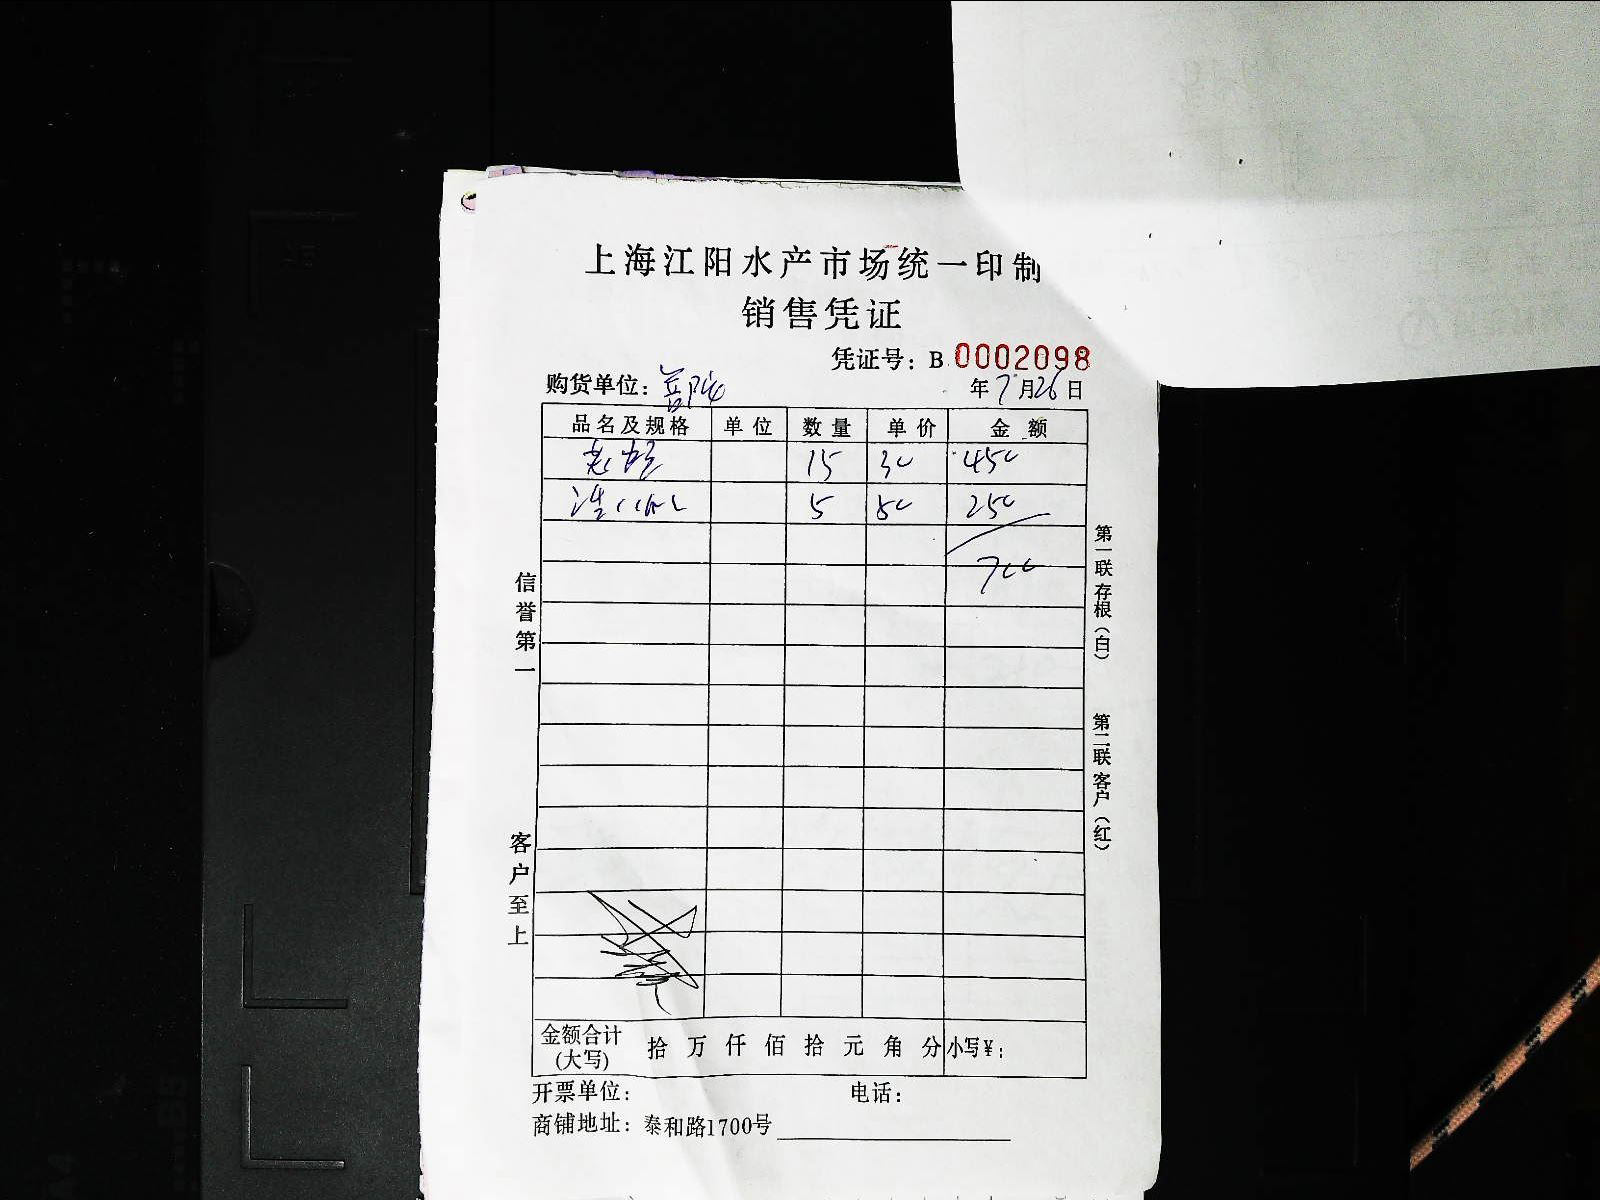 上海江阳水产市场统一印制
销售凭证
凭证号：B 0002098
购货单位： 年 7月26日
品名及规格 单位 数量 单价 金额
15 30 450
5 50 250
700
信誉第一
客户至上
第一联存根（白）
第二联客户（红）
金额合计（大写） 拾 万 仟 佰 拾 元 角 分 小写¥：
开票单位： 电话：
商铺地址：泰和路1700号